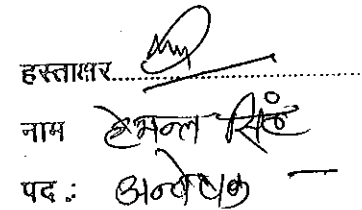 हस्ताक्षर....................................
नाम हेमन्त सिंह
पद : अन्वेषक —